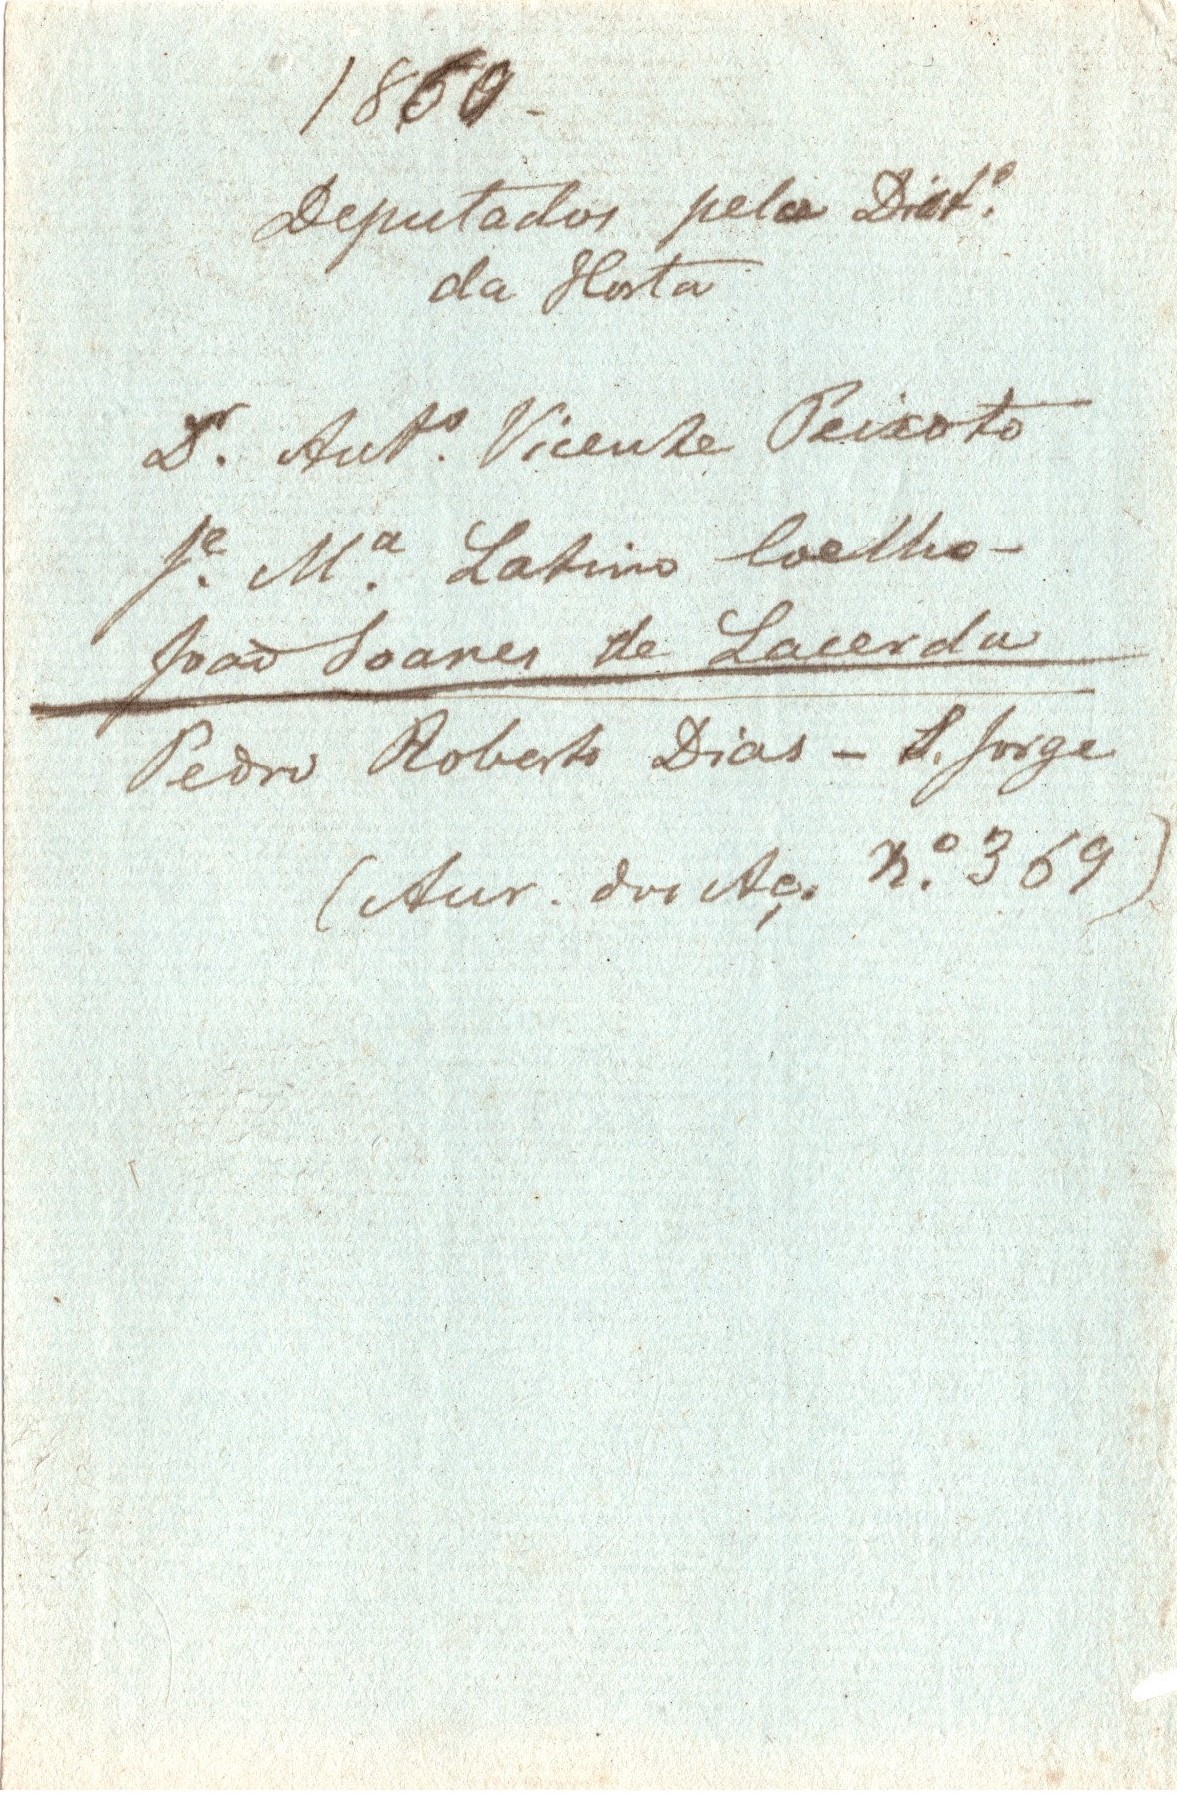 1860 -
Deputados pelo Dist.º
da Horta
Dr. Ant.º Vicente Peixoto
J.e M.a Latino Coelho -
João Soares de Lacerda
Pedro Roberto Dias - S. Jorge
(Aur. dos Aç. n.º 369)